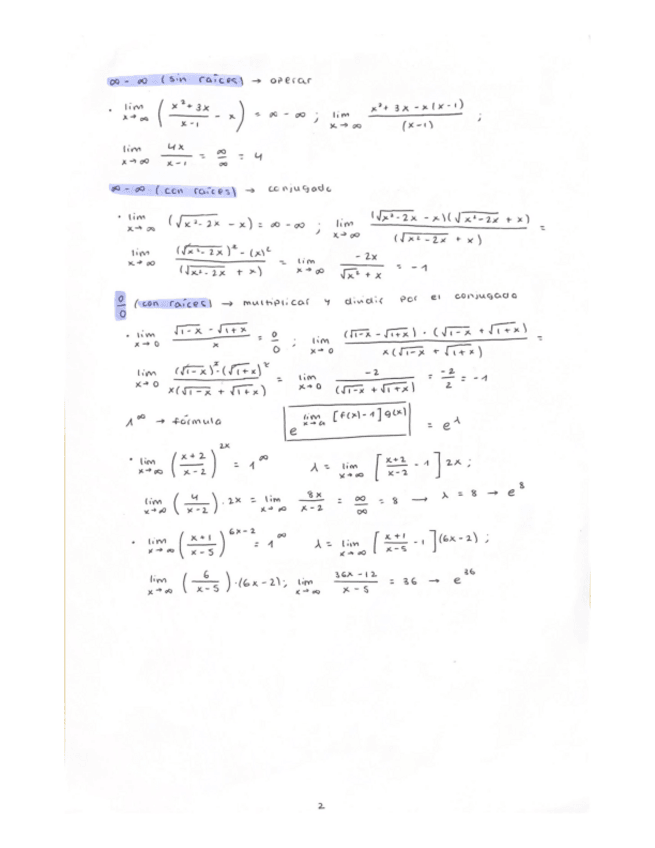 ∞ - ∞ (sin raíces) → operar
· lim x→∞ ( (x²+3x)/(x-1) - x ) = ∞ - ∞ ; lim x→∞ (x²+3x-x(x-1))/((x-1)) ;
lim x→∞ 4x/(x-1) = ∞/∞ = 4
∞ - ∞ (con raíces) → conjugado
· lim x→∞ (√(x²-2x) - x) = ∞ - ∞ ; lim x→∞ ((√(x²-2x) - x)(√(x²-2x) + x))/((√(x²-2x) + x)) =
lim x→∞ ((√(x²-2x))² - (x)²)/((√(x²-2x) + x)) = lim x→∞ (-2x)/(√(x²) + x) = -1
0/0 (con raíces) → multiplicar y dividir por el conjugado
· lim x→0 (√(1-x) - √(1+x))/x = 0/0 ; lim x→0 ((√(1-x) - √(1+x)) · (√(1-x) + √(1+x)))/(x(√(1-x) + √(1+x))) =
lim x→0 ((√(1-x))² - (√(1+x))²)/(x(√(1-x) + √(1+x))) = lim x→0 (-2)/((√(1-x) + √(1+x))) = -2/2 = -1
1^∞ → fórmula e^(lim x→a [f(x)-1]g(x)) = e^λ
· lim x→∞ ((x+2)/(x-2))^(2x) = 1^∞ λ = lim x→∞ [(x+2)/(x-2) - 1] 2x ;
lim x→∞ (4/(x-2)) · 2x = lim x→∞ 8x/(x-2) = ∞/∞ = 8 → λ = 8 → e^8
· lim x→∞ ((x+1)/(x-5))^(6x-2) = 1^∞ λ = lim x→∞ [(x+1)/(x-5) - 1](6x-2) ;
lim x→∞ (6/(x-5)) · (6x-2); lim x→∞ (36x-12)/(x-5) = 36 → e^36
2